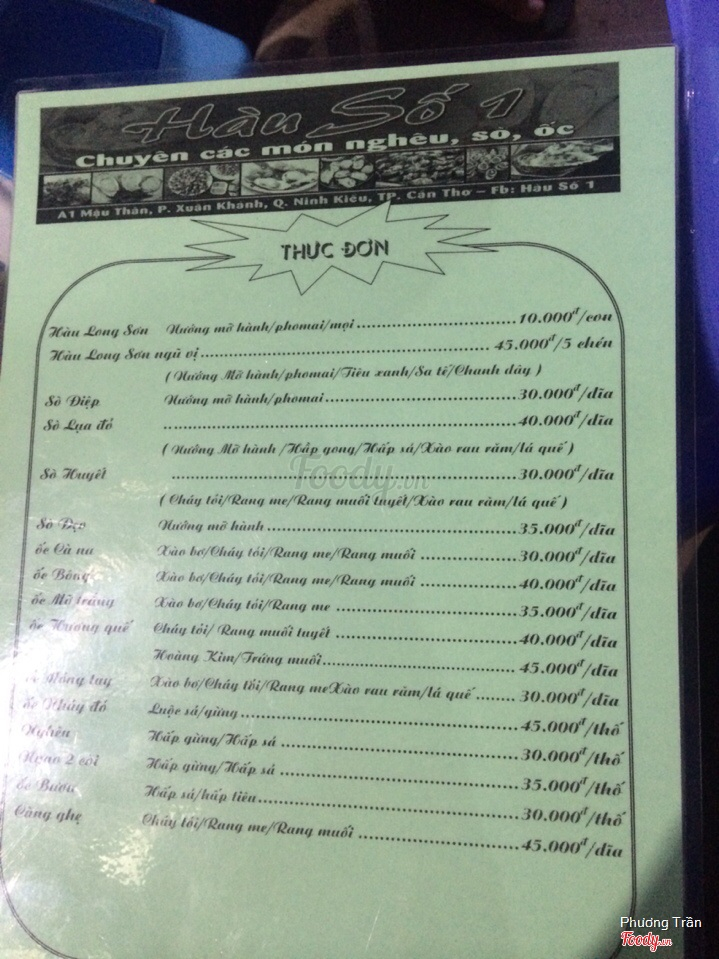 Hàu Số 1
Chuyên các món nghêu, sò, ốc
A1 Mậu Thân, P. Xuân Khánh, Q. Ninh Kiều, TP. Cần Thơ – Fb: Hàu Số 1
THỰC ĐƠN
Hàu Long Sơn Nướng mỡ hành/phomai/mọi 10.000đ/con
Hàu Long Sơn ngũ vị 45.000đ/5 chén
( Nướng Mỡ hành/phomai/Tiêu xanh/Sa tế/Chanh dây )
Sò Điệp Nướng mỡ hành/phomai 30.000đ/dĩa
Sò Lụa đỏ 40.000đ/dĩa
( Nướng Mỡ hành /Hấp gong/Hấp sả/Xào rau răm/lá quế )
Foody.vn
Sò Huyết 30.000đ/dĩa
( Cháy tỏi/Rang me/Rang muối tuyết/Xào rau răm/lá quế )
Sò Dẹo Nướng mỡ hành 35.000đ/dĩa
ốc Cà na Xào bơ/Cháy tỏi/Rang me/Rang muối 30.000đ/dĩa
ốc Bông Xào bơ/Cháy tỏi/Rang me/Rang muối 40.000đ/dĩa
ốc Mỡ trắng Xào bơ/Cháy tỏi/Rang me 35.000đ/dĩa
ốc Hương quế Cháy tỏi/ Rang muối tuyết 40.000đ/dĩa
Hoàng Kim/Trứng muối 45.000đ/dĩa
ốc Móng tay Xào bơ/Cháy tỏi/Rang meXào rau răm/lá quế 30.000đ/dĩa
ốc Nhảy đỏ Luộc sả/gừng 45.000đ/thố
Nghêu Hấp gừng/Hấp sả 30.000đ/thố
2 cồi Hấp gừng/Hấp sả 35.000đ/thố
ốc Bươu Hấp sả/hấp tiêu 30.000đ/thố
Càng ghẹ Cháy tỏi/Rang me/Rang muối 45.000đ/dĩa
Phương Trần
Foody.vn